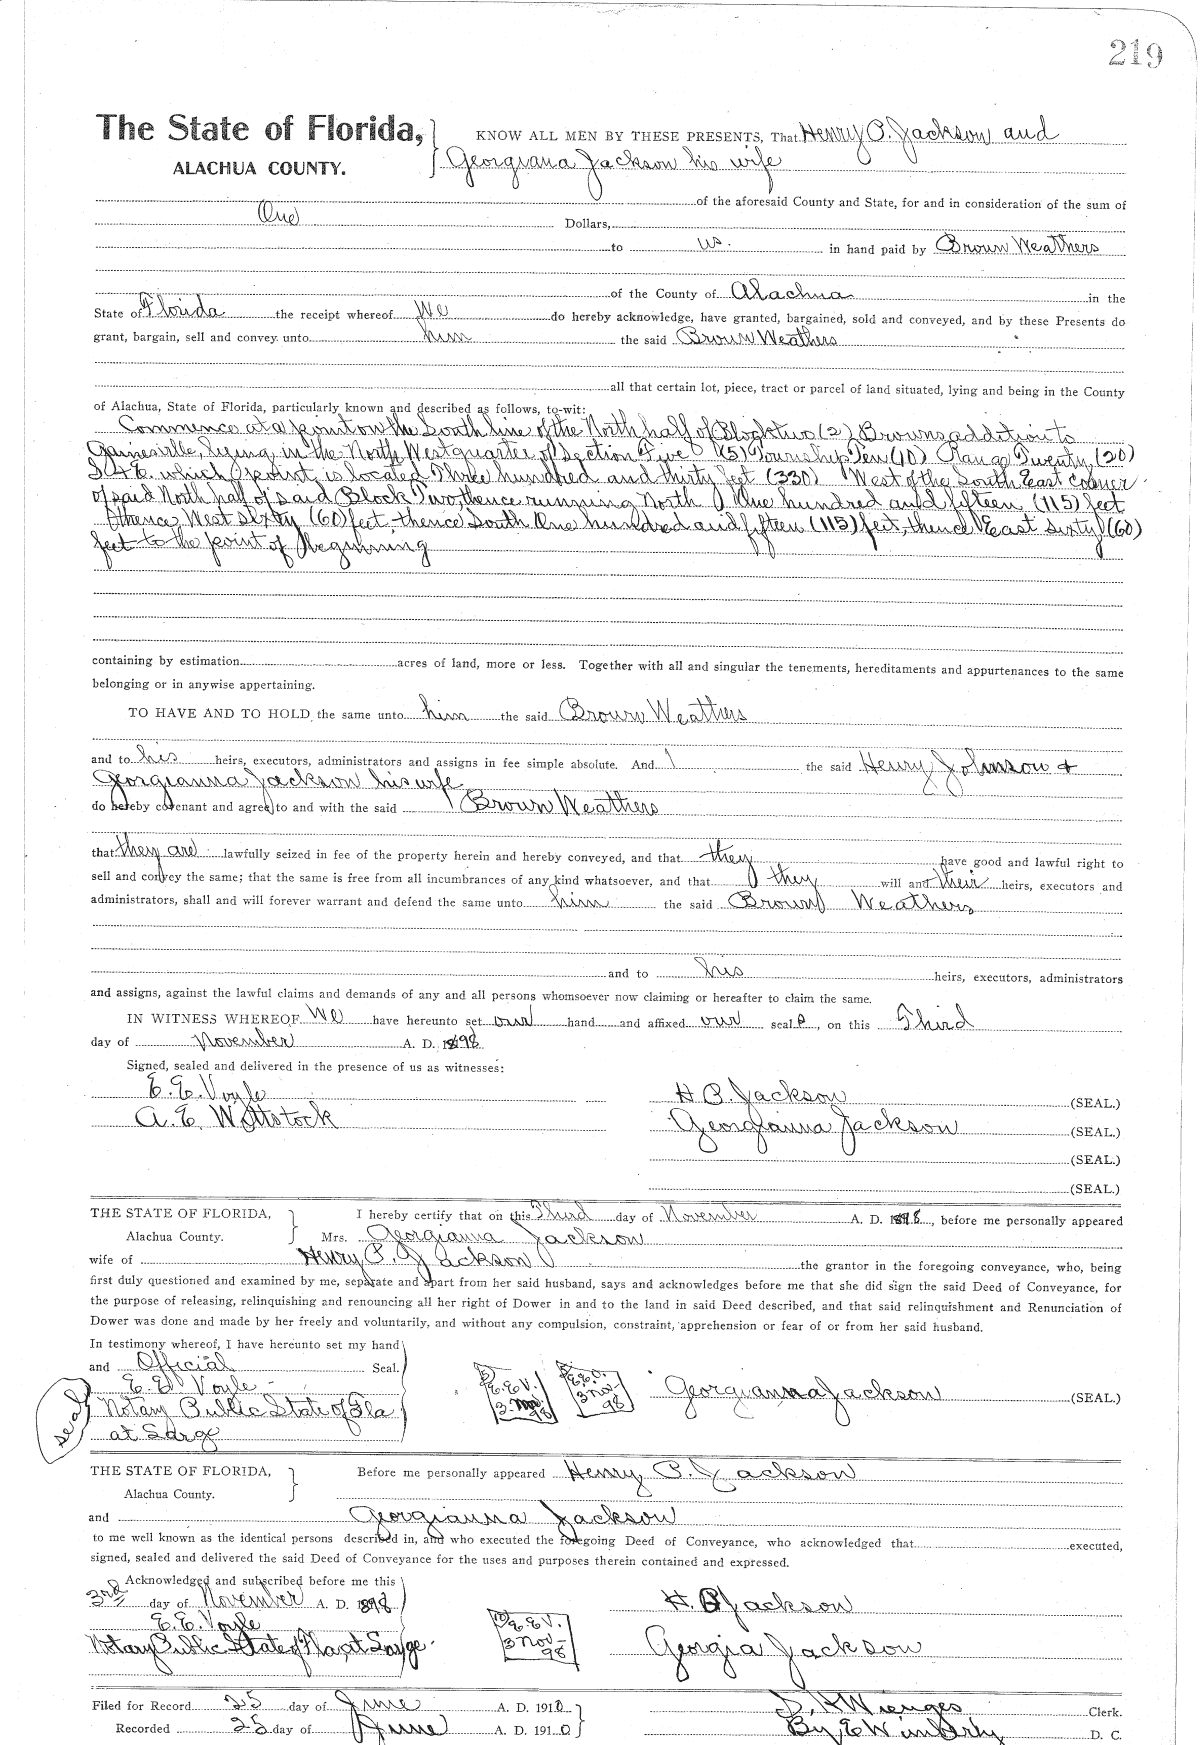 219
The State of Florida, KNOW ALL MEN BY THESE PRESENTS, That Henry P. Jackson and
ALACHUA COUNTY. Georgiana Jackson his wife
of the aforesaid County and State, for and in consideration of the sum of
One Dollars,
to us. in hand paid by Brown Weathers
of the County of Alachua in the
State of Florida the receipt whereof We do hereby acknowledge, have granted, bargained, sold and conveyed, and by these Presents do
grant, bargain, sell and convey unto him the said Brown Weathers
all that certain lot, piece, tract or parcel of land situated, lying and being in the County
of Alachua, State of Florida, particularly known and described as follows, to-wit:
Commence at a point on the South line of the North half of Block two (2) Browns addition to
Gainesville, lying in the North West quarter of Section Five (5) Township Ten (10) Range Twenty (20)
S & E. which point is located Three hundred and thirty feet (330) West of the South East corner
of said North half of said Block Two, thence running North One hundred and fifteen (115) feet
thence West sixty (60) feet thence South One hundred and fifteen (115) feet, thence East sixty (60)
feet to the point of beginning
containing by estimation acres of land, more or less. Together with all and singular the tenements, hereditaments and appurtenances to the same
belonging or in anywise appertaining.
TO HAVE AND TO HOLD the same unto him the said Brown Weathers
and to his heirs, executors, administrators and assigns in fee simple absolute. And the said Henry Johnson &
Georgianna Jackson his wife
do hereby covenant and agree to and with the said Brown Weathers
that they are lawfully seized in fee of the property herein and hereby conveyed, and that they have good and lawful right to
sell and convey the same; that the same is free from all incumbrances of any kind whatsoever, and that they will and their heirs, executors and
administrators, shall and will forever warrant and defend the same unto him the said Brown Weathers
and to his heirs, executors, administrators
and assigns, against the lawful claims and demands of any and all persons whomsoever now claiming or hereafter to claim the same.
IN WITNESS WHEREOF We have hereunto set our hand and affixed our seal s, on this Third
day of November A. D. 1898
Signed, sealed and delivered in the presence of us as witnesses:
E. E. Voyle H P. Jackson (SEAL.)
A. E. Wottstock Georgianna Jackson (SEAL.)
(SEAL.)
(SEAL.)
THE STATE OF FLORIDA, I hereby certify that on this Third day of November A. D. 1898, before me personally appeared
Alachua County. Mrs. Georgianna Jackson
wife of Henry P. Jackson the grantor in the foregoing conveyance, who, being
first duly questioned and examined by me, separate and apart from her said husband, says and acknowledges before me that she did sign the said Deed of Conveyance, for
the purpose of releasing, relinquishing and renouncing all her right of Dower in and to the land in said Deed described, and that said relinquishment and Renunciation of
Dower was done and made by her freely and voluntarily, and without any compulsion, constraint, apprehension or fear of or from her said husband.
In testimony whereof, I have hereunto set my hand
and Official Seal.
E. E. Voyle E.E.V. 3 Nov. 98 E.E.V. 3 Nov- 98 Georgianna Jackson (SEAL)
seal Notary Public State of Fla
at Large
THE STATE OF FLORIDA, Before me personally appeared Henry P. Jackson
Alachua County.
and Georgianna Jackson
to me well known as the identical persons described in, and who executed the foregoing Deed of Conveyance, who acknowledged that executed,
signed, sealed and delivered the said Deed of Conveyance for the uses and purposes therein contained and expressed.
Acknowledged and subscribed before me this
3rd day of November A. D. 1898 H. P Jackson
E. E. Voyle E.E.V. 3 Nov- 98
Notary Public State of Fla, at Large. Georgia Jackson
Filed for Record 25 day of June A. D. 1910 S. H Wienges Clerk.
Recorded 25 day of June A. D. 1910 By, E Wimberly D. C.